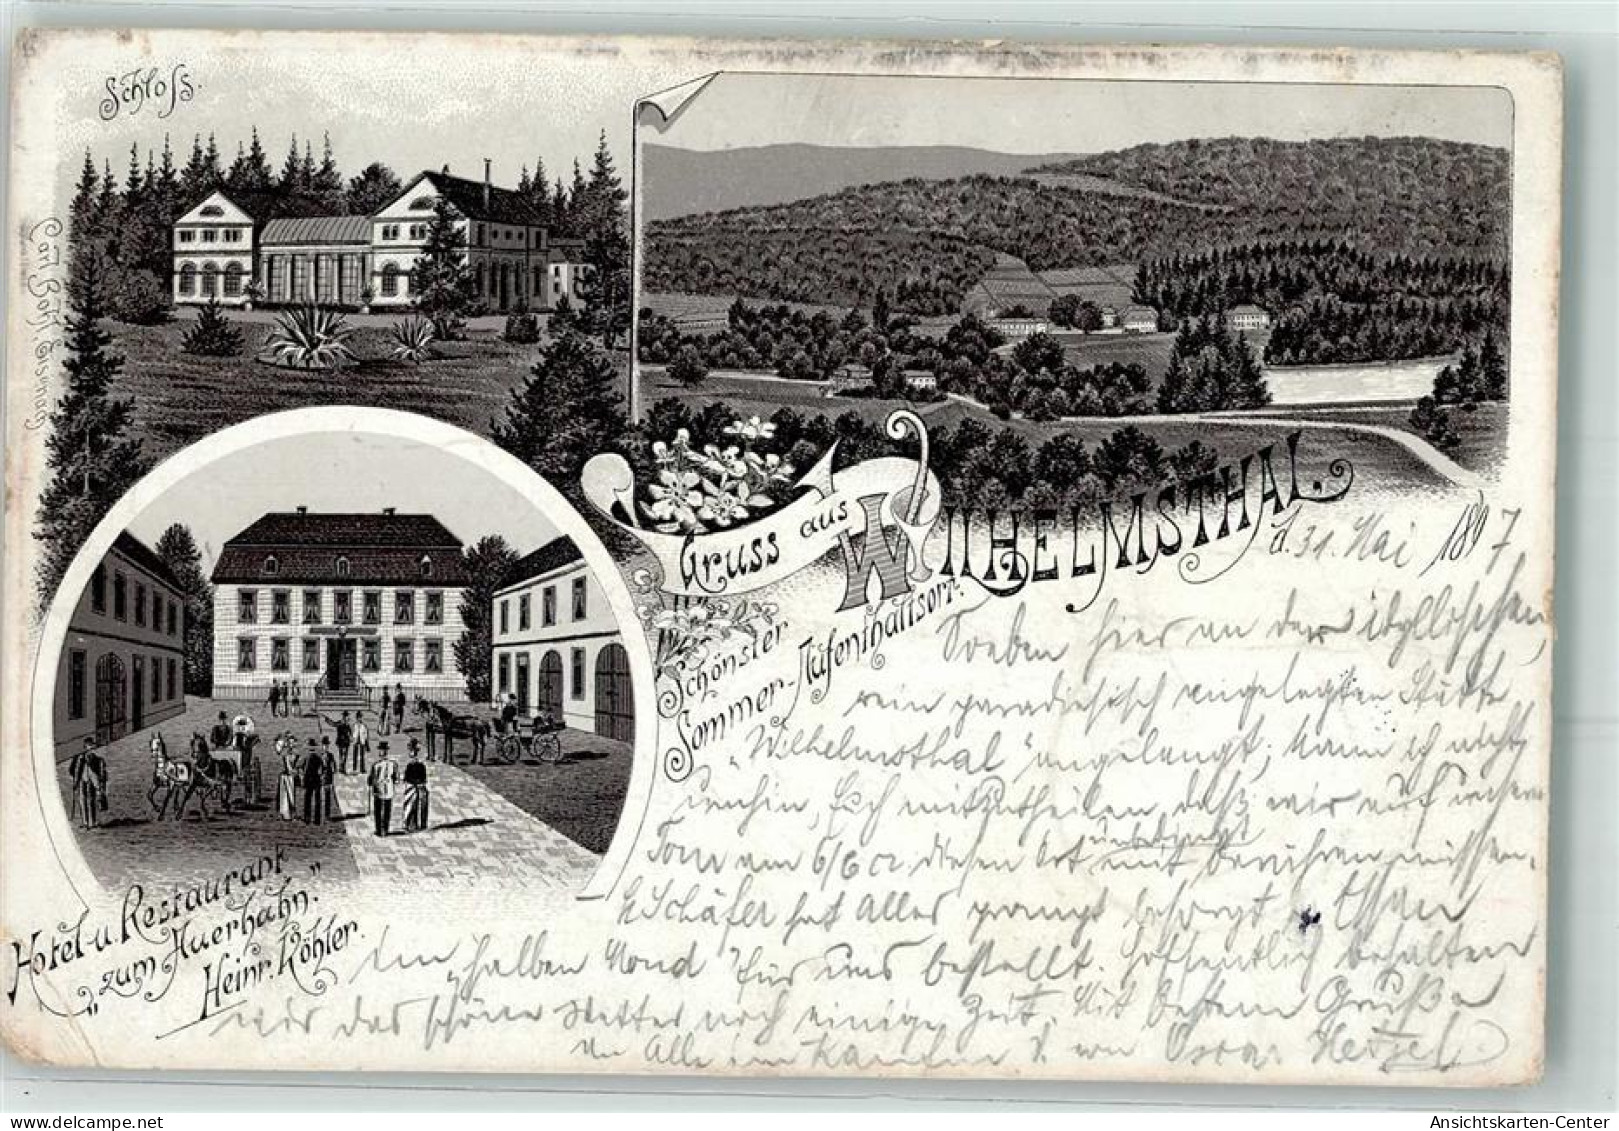 Schloss.
Carl Bohl Eisenach
Gruss aus WILHELMSTHAL.
Schönster
Sommer-Aufenthaltsort.
Hotel u. Restaurant
"zum Auerhahn."
Heinr. Köhler.
d. 31. Mai 1897
Soeben hier an der idyllischen,
rein paradiesisch angelegten Stätte
„Wilhelmsthal" angelangt, kann ich nicht
umhin, Euch mitzutheilen, daß wir auf unserer
Tour am 6/6 cr. diesen Ort unbedingt berühren müssen.
E. Schäfer hat Alles prompt besorgt Essen
im „halben Mond" für uns bestellt. Hoffentlich behalten
wir das schöne Wetter noch einige Zeit. Mit bestem Gruße
an Alle im von Oscar Hetzel
Ansichtskarten-Center